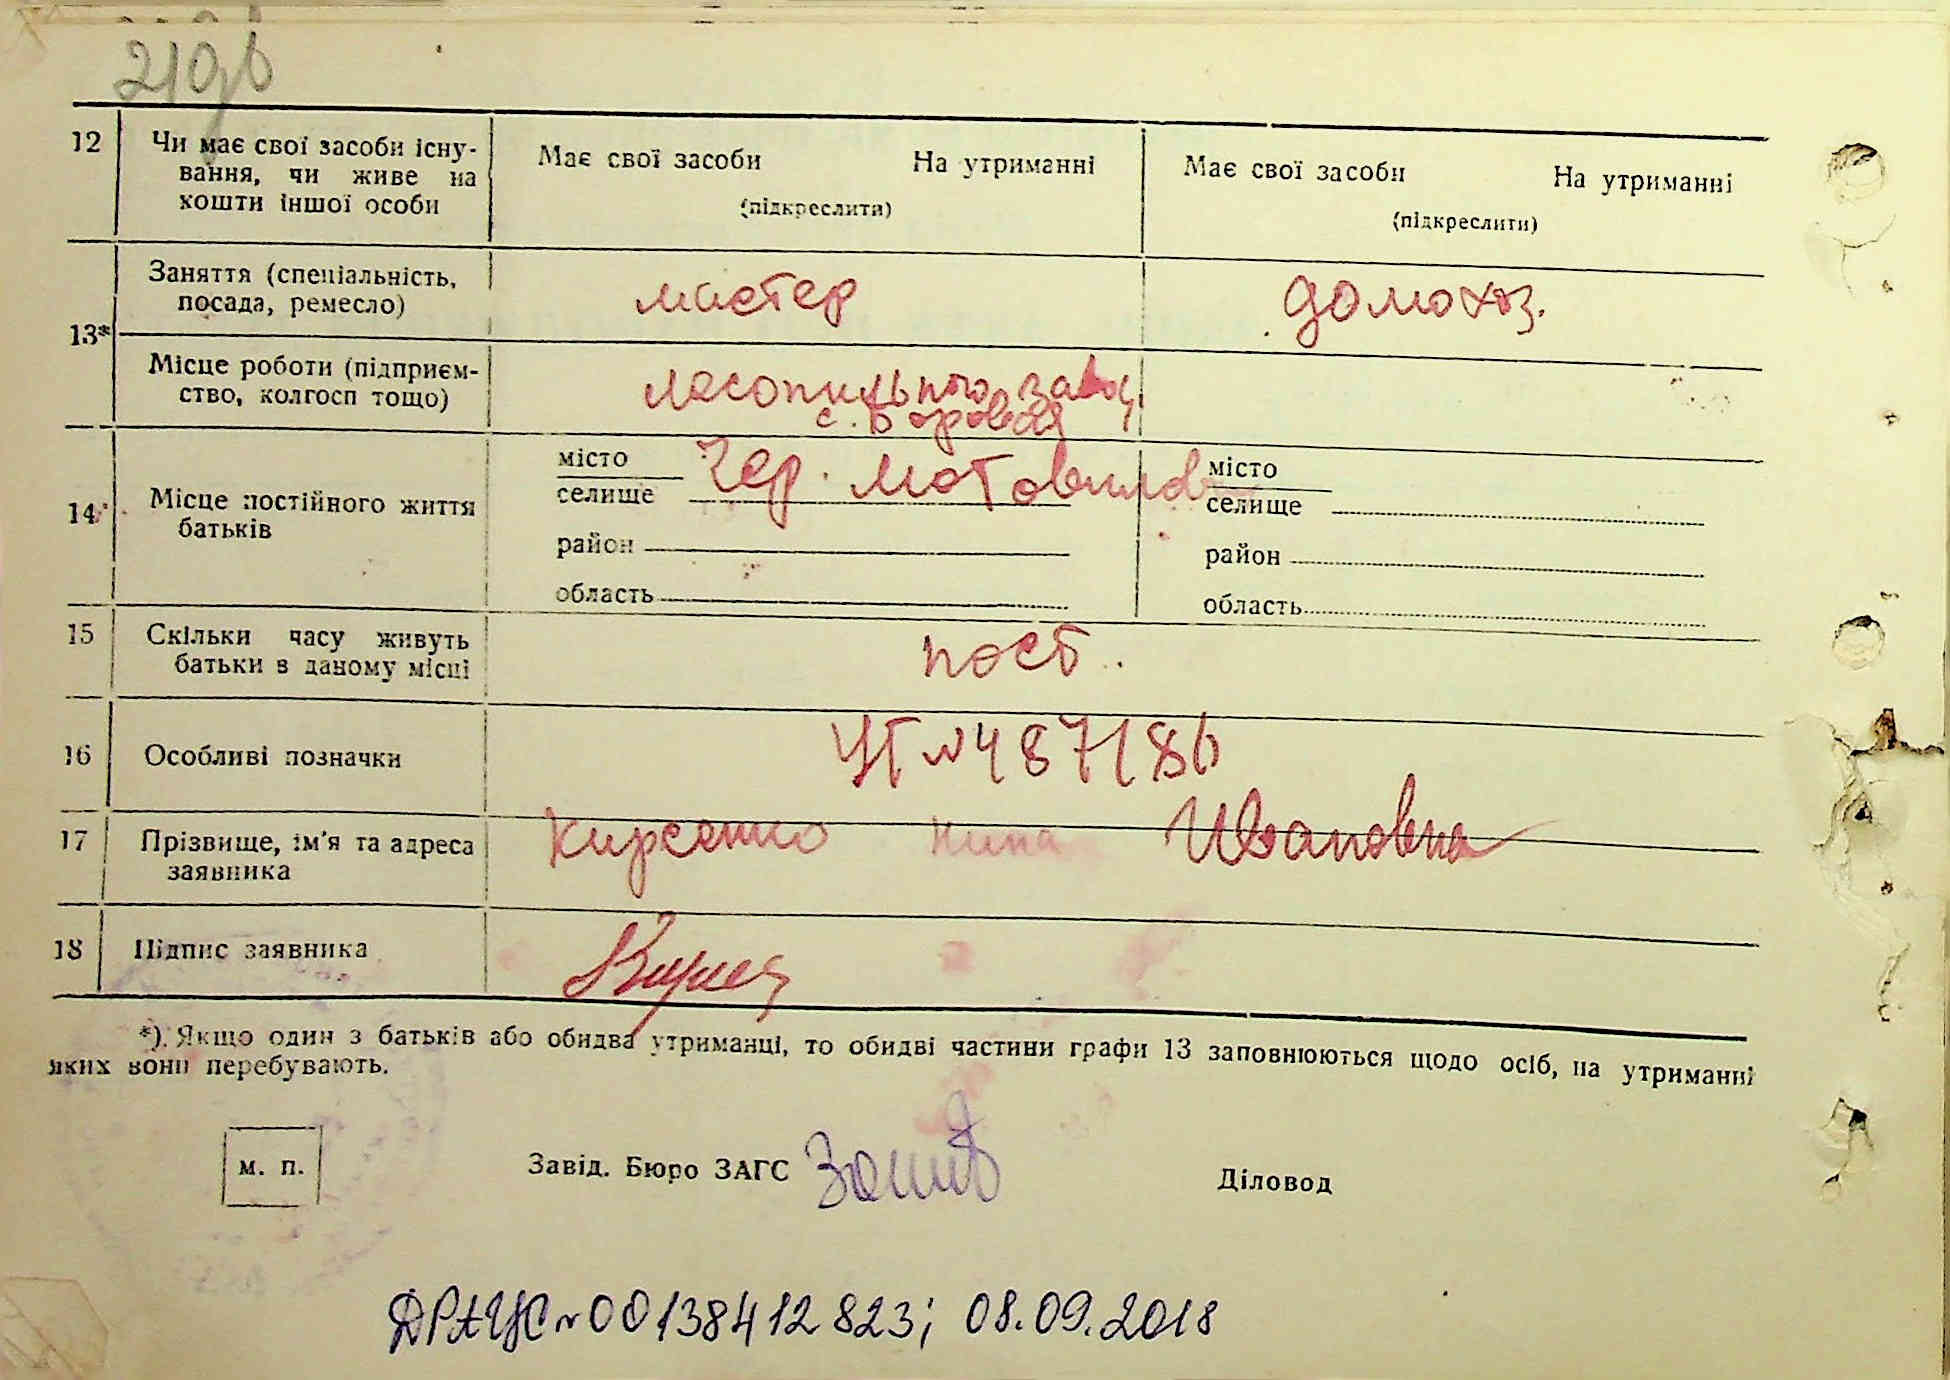 219об
12 Чи має свої засоби існу- Має свої засоби На утриманні Має свої засоби На утриманні
вання, чи живе на
кошти іншої особи (підкреслити) (підкреслити)
13* Заняття (спеціальність, мастер домохоз.
посада, ремесло)
Місце роботи (підприєм- лесопильного завод
ство, колгосп тощо) с. Боровая
14 Місце постійного життя місто Чер. Мотовилов місто
батьків селище селище
район район
область область
15 Скільки часу живуть пост.
батьки в даному місці
16 Особливі позначки №487186
17 Прізвище, ім'я та адреса Кирсенко Нина Ивановна
заявника
18 Підпис заявника
*). Якщо один з батьків або обидва утриманці, то обидві частини графи 13 заповнюються щодо осіб, на утриманні
яких вони перебувають.
м. п. Завід. Бюро ЗАГС Діловод
ДРАЦС №00138412823; 08.09.2018